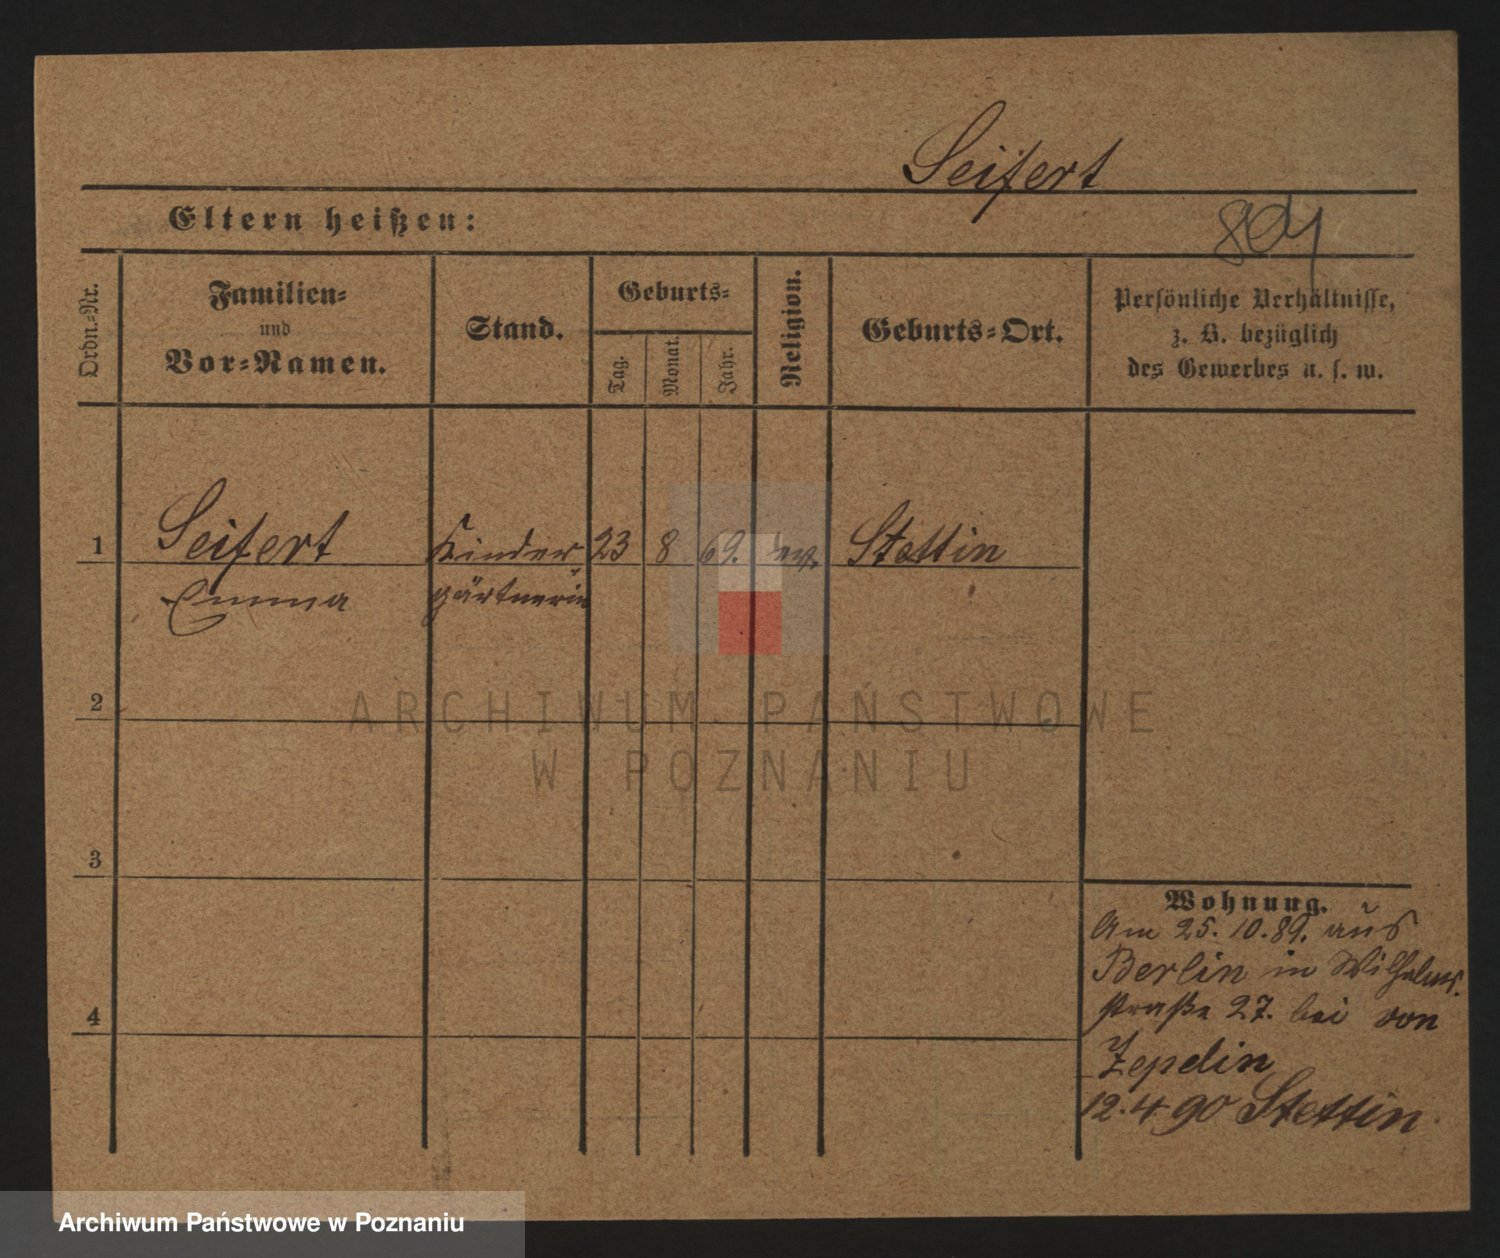 Seifert
Eltern heißen:
804
Ordn.-Nr.
Familien-
und
Vor-Namen.
Stand.
Geburts-
Tag.
Monat.
Jahr.
Religion.
Geburts-Ort.
Persönliche Verhältnisse,
z. B. bezüglich
des Gewerbes u. s. w.
1 Seifert Kinder 23 8 69. ev. Stettin
Emma gärtnerin
2
ARCHIWUM PAŃSTWOWE
W POZNANIU
3
Wohnung.
Am 25. 10. 89. aus
Berlin in Wilhelms.
4
straße 27. bei von
Zepelin
12. 4 90 Stettin.
Archiwum Państwowe w Poznaniu